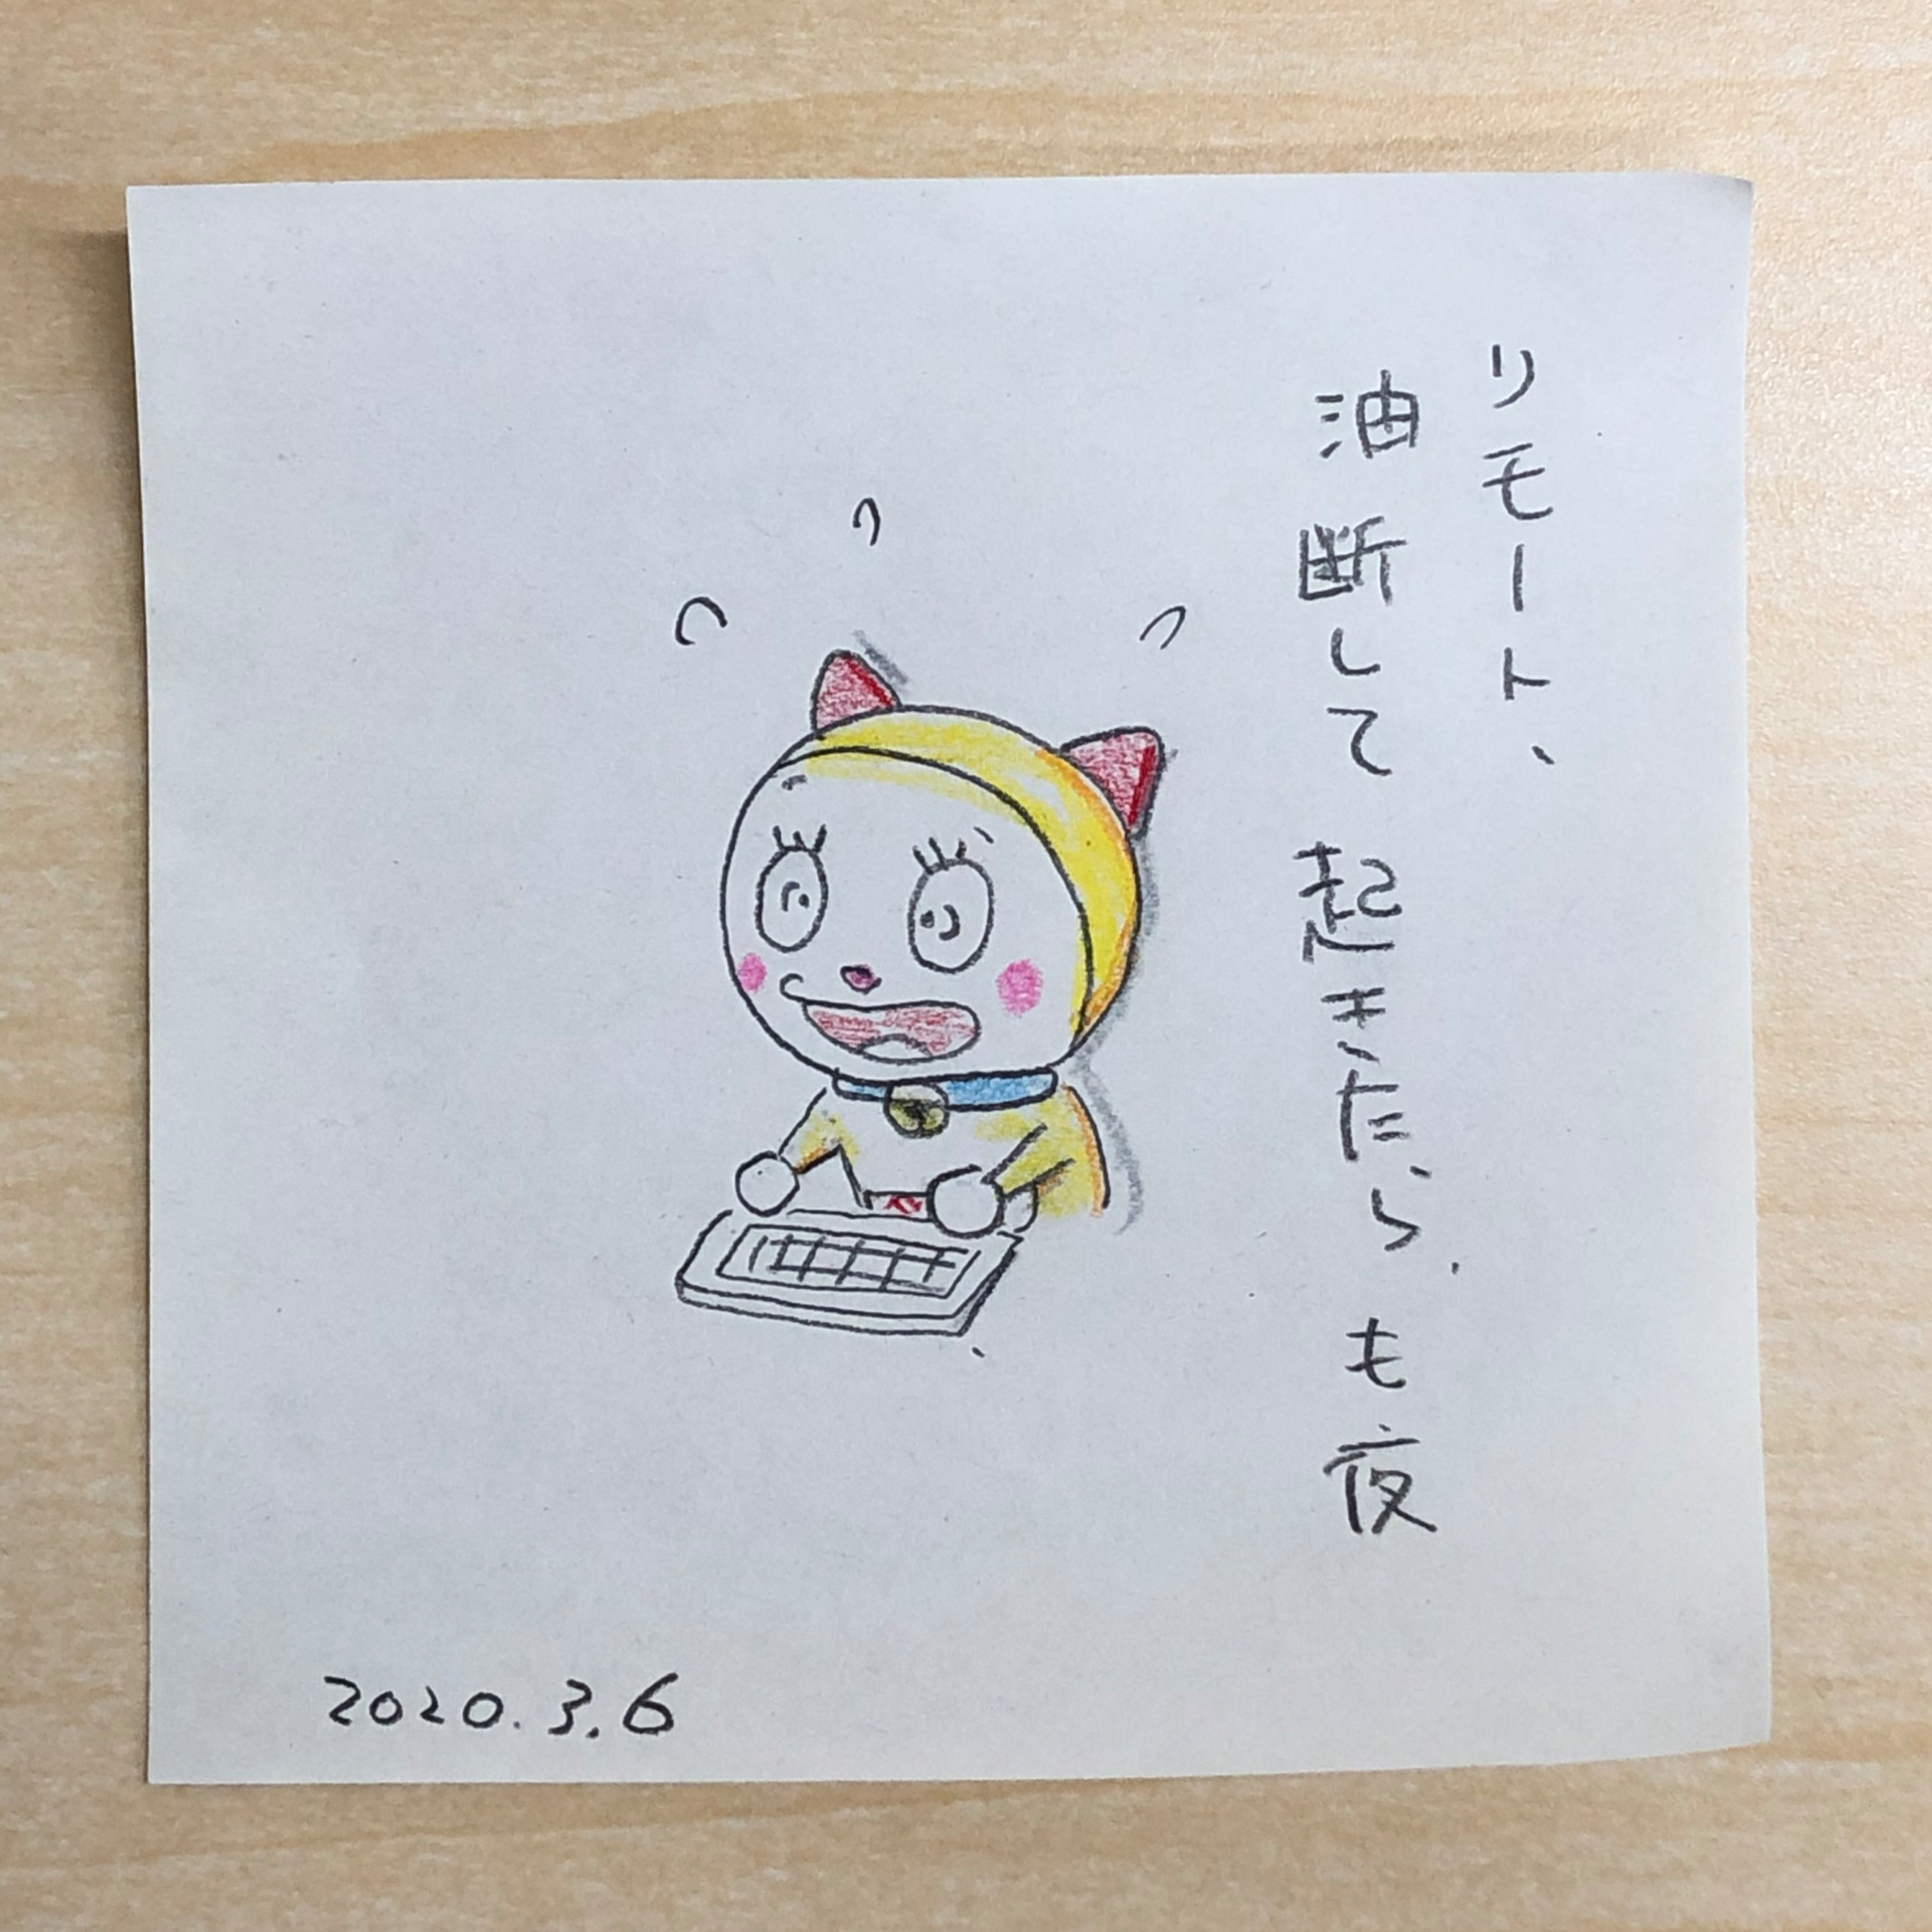 リモート、
油断して起きたらも夜
2020.3.6